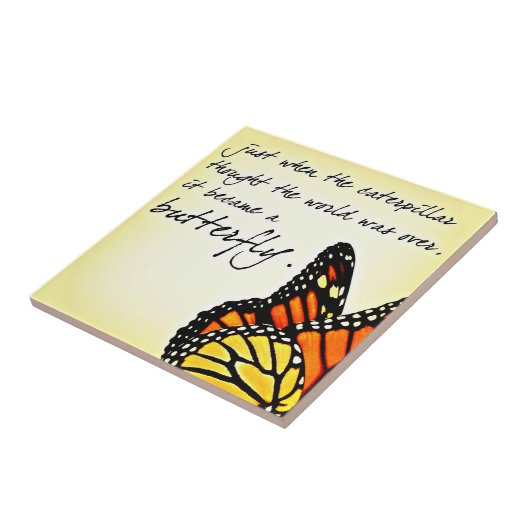 just when the caterpillar
thought the world was over,
it became a
butterfly.